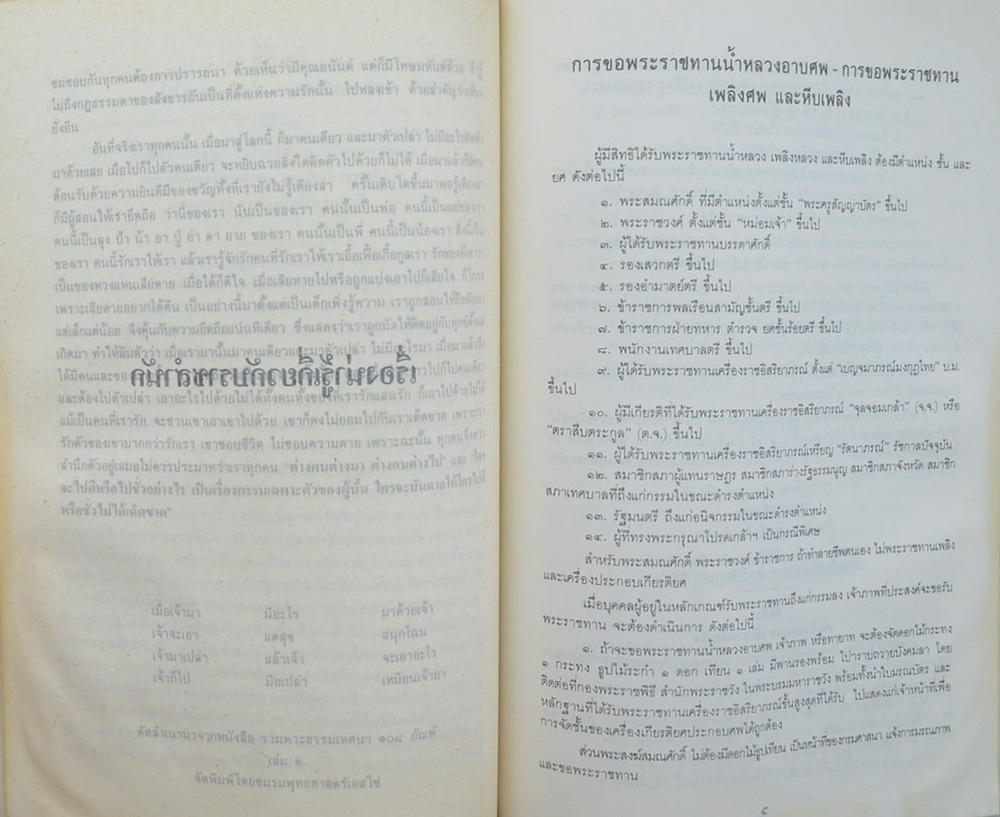 ชมชอบกันทุกคนต้องการปรารถนา ด้วยเห็นว่ามีคุณอนันต์ แต่ก็มีโทษมหันต์ด้วย
ไม่ถึงกฎธรรมดาของสังขารอันเป็นที่ตั้งแห่งความรักนั้น ไปหลงเข้า ด้วยสำคัญว่า
ยั่งยืน
อันที่จริงเราทุกคนนั้น เมื่อมาสู่โลกนี้ ก็มาคนเดียว และมาตัวเปล่า ไม่มีอะไรติดตัว
มาด้วยเลย เมื่อไปก็ไปตัวคนเดียว จะหยิบฉวยสิ่งใดติดตัวไปด้วยก็ไม่ได้ เมื่อมาแล้วก็มี
ต้อนรับด้วยความยินดีมีของขวัญทั้งที่เรายังไม่รู้เดียงสา ครั้นเติบโตขึ้นมาพอรู้เดียงสา
ก็มีผู้สอนให้เรายึดถือ ว่านี่ของเรา นั่นเป็นของเรา คนนั้นเป็นพ่อ คนนี้เป็นแม่ของเรา
คนนี้เป็นลุง ป้า น้า อา ปู่ ย่า ตา ยาย ของเรา คนนั้นเป็นพี่ คนนี้เป็นน้องเรา สิ่งนี้เป็น
ของเรา คนนี้รักเราให้เรา แล้วเรารู้จักรักคนที่รักเราให้เราเอื้อเฟื้อเกื้อกูลเรา
เป็นของหวงแหนเสียดาย เมื่อได้ก็ดีใจ เมื่อเสียหายไปหรือถูกแบ่งเอาไปก็เสียใจ
เพราะเสียดายอยากได้คืน เป็นอย่างนี้มาตั้งแต่เป็นเด็กเพิ่งรู้ความ เราถูกสอนให้ยึดถือมา
แต่เล็กแต่น้อย จึงคุ้นกับความยึดถือแน่นทีเดียว ซึ่งแสดงว่าเราถูกมัดให้ติดอยู่กับทุกข์ตั้งแต่
เกิดมา ทำให้ลืมตัวว่า เมื่อเรามานั้นมาคนเดียวและมาตัวเปล่า ไม่มีอะไรมา เมื่อมาแล้วจึง
ได้มีคนและของ
และต้องไปตัวเปล่า เอาอะไรไปด้วยไม่ได้ทั้งคนทั้งของที่เรารักแสนรัก ก็เอาไปด้วยไม่ได้
แม้เป็นคนที่เรารัก จะชวนเขาเอาเขาไปด้วย เขาก็คงไม่ยอมไปกับเราเด็ดขาด เพราะเขา
รักตัวของเขามากกว่ารักเรา เขาชอบชีวิต ไม่ชอบความตาย เพราะฉะนั้น ทุกคนจึงควร
สำนึกตัวอยู่เสมอไม่ควรประมาทว่าเราทุกคน "ต่างคนต่างมา ต่างคนต่างไป" และ "ใคร
จะไปดีหรือไปชั่วอย่างไร เป็นเรื่องกรรมเฉพาะตัวของผู้นั้น ใครจะบันดาลให้ใครไปดี
หรือชั่วไม่ได้เด็ดขาด"
เรื่องน่ารู้เกี่ยวกับราชสำนัก
เมื่อเจ้ามา มีอะไร มาด้วยเจ้า
เจ้าจะเอา แต่สุข สนุกไฉน
เจ้ามาเปล่า แล้วเจ้า จะเอาอะไร
เจ้าก็ไป มือเปล่า เหมือนเจ้ามา
คัดสำเนามาจากหนังสือ รวมพระธรรมเทศนา ๑๐๘ กัณฑ์
เล่ม ๑
จัดพิมพ์โดยชมรมพุทธศาสตร์เอสโซ่
การขอพระราชทานน้ำหลวงอาบศพ - การขอพระราชทาน
เพลิงศพ และหีบเพลิง
ผู้มีสิทธิได้รับพระราชทานน้ำหลวง เพลิงหลวง และหีบเพลิง ต้องมีตำแหน่ง ชั้น และ
ยศ ดังต่อไปนี้
๑. พระสมณศักดิ์ ที่มีตำแหน่งตั้งแต่ชั้น "พระครูสัญญาบัตร" ขึ้นไป
๒. พระราชวงศ์ ตั้งแต่ชั้น "หม่อมเจ้า" ขึ้นไป
๓. ผู้ได้รับพระราชทานบรรดาศักดิ์
๔. รองเสวกตรี ขึ้นไป
๕. รองอำมาตย์ตรี ขึ้นไป
๖. ข้าราชการพลเรือนสามัญชั้นตรี ขึ้นไป
๗. ข้าราชการฝ่ายทหาร ตำรวจ ยศชั้นร้อยตรี ขึ้นไป
๘. พนักงานเทศบาลตรี ขึ้นไป
๙. ผู้ได้รับพระราชทานเครื่องราชอิสริยาภรณ์ ตั้งแต่ "เบญจมาภรณ์มงกุฎไทย" บ.ม.
ขึ้นไป
๑๐. ผู้มีเกียรติที่ได้รับพระราชทานเครื่องราชอิสริยาภรณ์ "จุลจอมเกล้า" (จ.จ.) หรือ
"ตราสืบตระกูล" (ต.จ.) ขึ้นไป
๑๑. ผู้ได้รับพระราชทานเครื่องราชอิสริยาภรณ์เหรียญ "รัตนาภรณ์" รัชกาลปัจจุบัน
๑๒. สมาชิกสภาผู้แทนราษฎร สมาชิกสภาร่างรัฐธรรมนูญ สมาชิกสภาจังหวัด สมาชิก
สภาเทศบาลที่ถึงแก่กรรมในขณะดำรงตำแหน่ง
๑๓. รัฐมนตรี ถึงแก่อนิจกรรมในขณะดำรงตำแหน่ง
๑๔. ผู้ที่ทรงพระกรุณาโปรดเกล้าฯ เป็นกรณีพิเศษ
สำหรับพระสมณศักดิ์ พระราชวงศ์ ข้าราชการ ถ้าทำลายชีพตนเอง ไม่พระราชทานเพลิง
และเครื่องประกอบเกียรติยศ
เมื่อบุคคลผู้อยู่ในหลักเกณฑ์รับพระราชทานถึงแก่กรรมลง เจ้าภาพที่ประสงค์จะขอรับ
พระราชทาน จะต้องดำเนินการ ดังต่อไปนี้
๑. ถ้าจะขอพระราชทานน้ำหลวงอาบศพ เจ้าภาพ หรือทายาท จะต้องจัดดอกไม้กระทง
๑ กระทง ธูปไม้ระกำ ๑ ดอก เทียน ๑ เล่ม มีพานรองพร้อม ไปกราบถวายบังคมลา โดย
ติดต่อที่กองพระราชพิธี สำนักพระราชวัง ในพระบรมมหาราชวัง พร้อมทั้งนำใบมรณบัตร และ
หลักฐานที่ได้รับพระราชทานเครื่องราชอิสริยาภรณ์ชั้นสูงสุดที่ได้รับ ไปแสดงแก่เจ้าหน้าที่เพื่อ
การจัดชั้นของเครื่องเกียรติยศประกอบศพได้ถูกต้อง
ส่วนพระสงฆ์สมณศักดิ์ ไม่ต้องมีดอกไม้ธูปเทียน เป็นหน้าที่ของกรมศาสนา แจ้งการมรณภาพ
และขอพระราชทาน